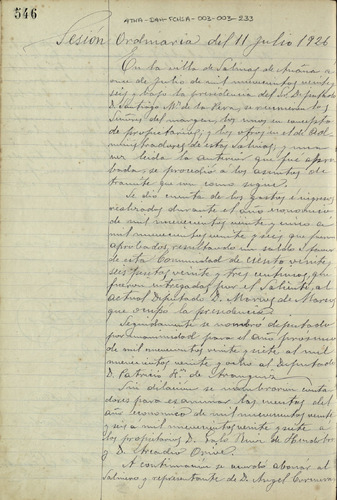 546
ATHA-DAH-FCMLA-003-003-233
Sesion Ordinaria del 11 Julio 1926
En la villa de Salinas de Añana a
once de Julio de mil novecientos veinte
seis y bajo la presidencia del Sr. Diputado
D. Santiago Mª de la Vera, se reunieron los
Señores del margen, los unos en concepto
de propietarios, y los otros en el de ad-
ministradores de estas Salinas, y una
vez leida la anterior que fue apro-
bada se procedió a los asuntos de
trámite que son como sigue.
Se dio cuenta de los gastos é ingresos
realizados durante el año economico
de mil novecientos veinte y cinco a
mil novecientos veinte y seis que fueron
aprobados, resultando un saldo á favor
de esta Comunidad de ciento veinte
seis pesetas veinte y tres centimos, que
fueron entregados por el saliente, al
actual Diputado D. Marcos de
que ocupó la presidencia.
Seguidamente se nombro diputado
por unanimidad para el año proximo
de mil novecientos veinte y siete al mil
novecientos veinte y ocho al Diputado
D. Patricio Rz. de
Sin dilacion se nombraron conta-
dores para examinar las cuentas del
año economico de mil novecientos veinte
y seis a mil novecientos veinte y siete á
los propietarios D. Pablo de
y D. Arcadio
A continuacion se acordo abonar al
Salinero y representante de D. Angel